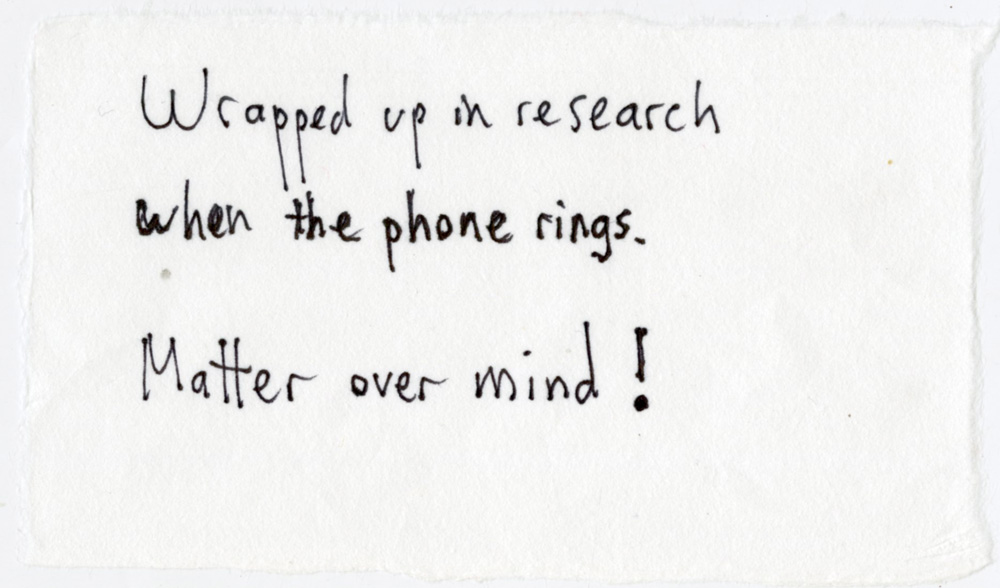 Wrapped up in research
when the phone rings.
Matter over mind!